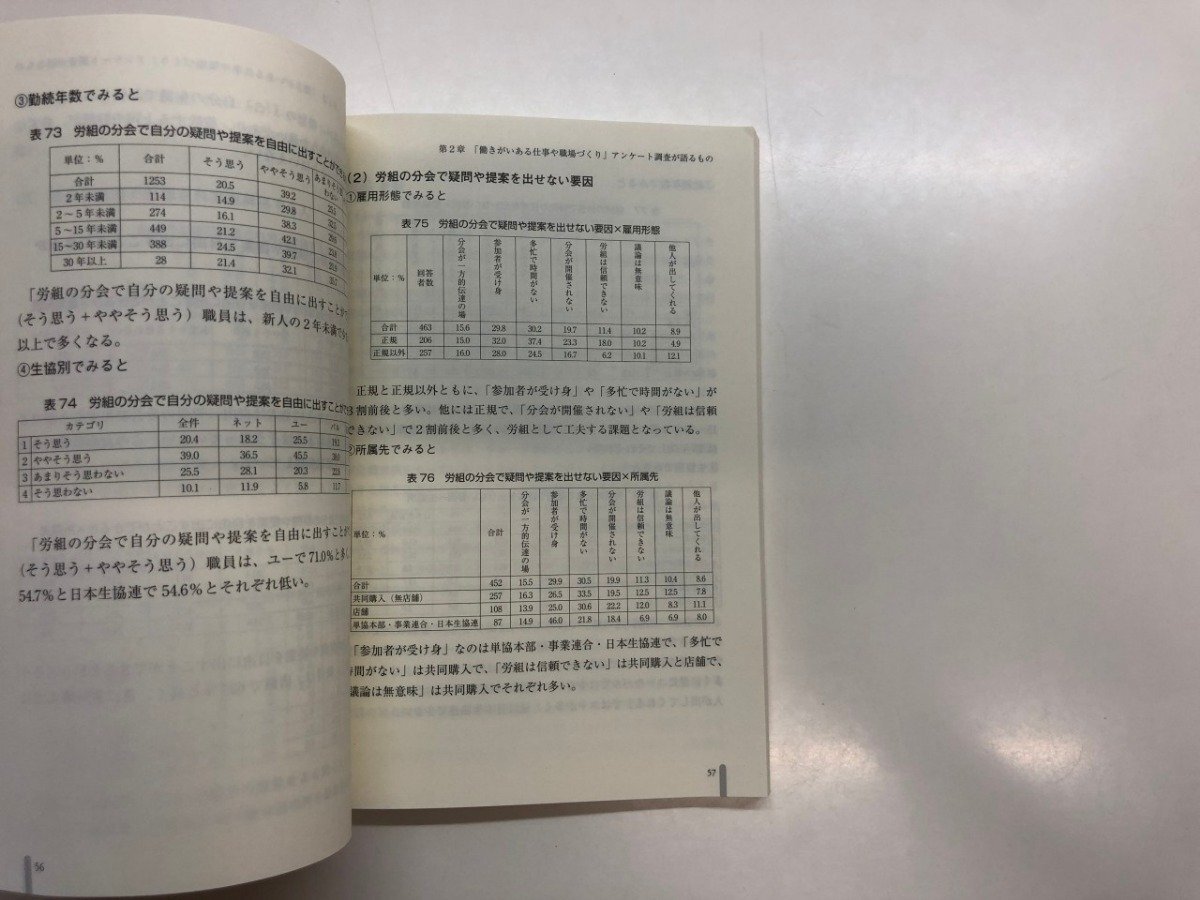 ③勤続年数でみると
表73 労組の分会で自分の疑問や提案を自由に出すことができ
単位：% 合計 そう思う ややそう思う あまりそう思
合計 1253 20.5 39.2
2年未満 114 14.9 29.8
2～5年未満 274 16.1 38.3
5～15年未満 449 21.2 42.1
15～30年未満 388 24.5 39.7
30年以上 28 21.4 32.1
「労組の分会で自分の疑問や提案を自由に出すことが
(そう思う＋ややそう思う) 職員は、新人の2年未満で
以上で多くなる。
④生協別でみると
表74 労組の分会で自分の疑問や提案を自由に出すことが
カテゴリ 全件 ネット ユー
1 そう思う 20.4 18.2 25.5
2 ややそう思う 39.0 36.5 45.5
3 あまりそう思わない 25.5 28.1 20.3
4 そう思わない 10.1 11.9 5.8
「労組の分会で自分の疑問や提案を自由に出すことが
(そう思う＋ややそう思う) 職員は、ユーで71.0%と多く
54.7%と日本生協連で54.6%とそれぞれ低い。
56
第2章 「働きがいある仕事や職場づくり」アンケート調査が語るもの
(2) 労組の分会で疑問や提案を出せない要因
①雇用形態でみると
表75 労組の分会で疑問や提案を出せない要因×雇用形態
単位：% 回答者数 分会が一方的伝達の場 参加者が受け身 多忙で時間がない 分会が開催されない 労組は信頼できない 議論は無意味 他人が出してくれる
合計 463 15.6 29.8 30.2 19.7 11.4 10.2 8.9
正規 206 15.0 32.0 37.4 23.3 18.0 10.2 4.9
正規以外 257 16.0 28.0 24.5 16.7 6.2 10.1 12.1
正規と正規以外ともに、「参加者が受け身」や「多忙で時間がない」が
割前後と多い。他には正規で、「分会が開催されない」や「労組は信頼
できない」で2割前後と多く、労組として工夫する課題となっている。
②所属先でみると
表76 労組の分会で疑問や提案を出せない要因×所属先
単位：% 合計 分会が一方的伝達の場 参加者が受け身 多忙で時間がない 分会が開催されない 労組は信頼できない 議論は無意味 他人が出してくれる
合計 452 15.5 29.9 30.5 19.9 11.3 10.4 8.6
共同購入（無店舗） 257 16.3 26.5 33.5 19.5 12.5 12.5 7.8
店舗 108 13.9 25.0 30.6 22.2 12.0 8.3 11.1
単協本部・事業連合・日本生協連 87 14.9 46.0 21.8 18.4 6.9 6.9 8.0
「参加者が受け身」なのは単協本部・事業連合・日本生協連で、「多忙で
時間がない」は共同購入で、「労組は信頼できない」は共同購入と店舗で、
議論は無意味」は共同購入でそれぞれ多い。
57